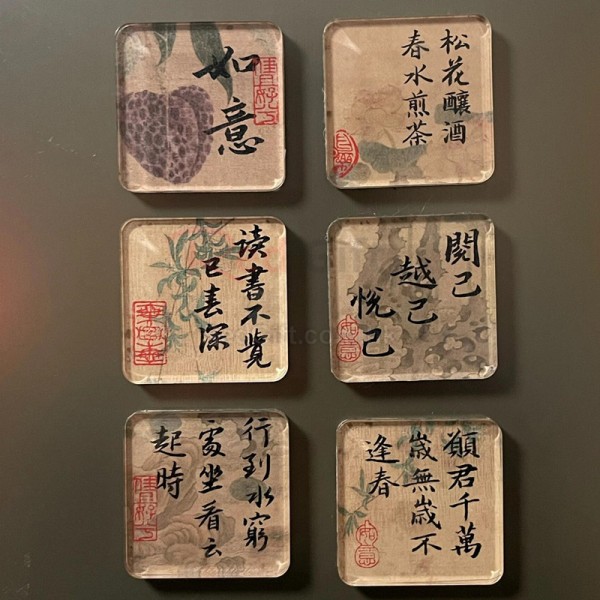 如意
松花釀酒
春水煎茶
读書不覺
已春深
閱己
越己
悅己
如意
行到水窮
處坐看云
起時
願君千萬
歲無歲不
逢春
如意